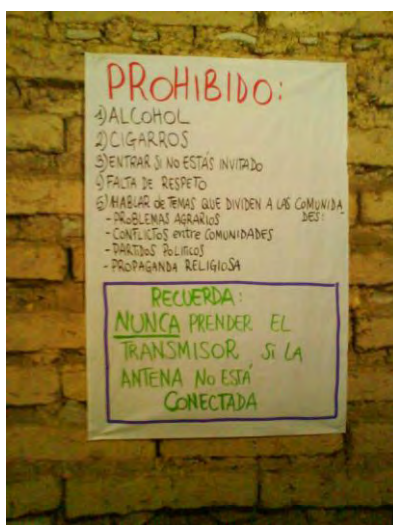 PROHIBIDO:
1) ALCOHOL
2) CIGARROS
3) ENTRAR SI NO ESTÁS INVITADO
4) FALTA DE RESPETO
5) HABLAR de TEMAS QUE DIVIDEN A LAS COMUNIDA
DES:
- PROBLEMAS AGRARIOS
- CONFLICTOS entre COMUNIDADES
- PARTIDOS POLITICOS
- PROPAGANDA RELIGIOSA
RECUERDA:
NUNCA PRENDER EL
TRANSMISOR Si LA
ANTENA No ESTÁ
CONECTADA